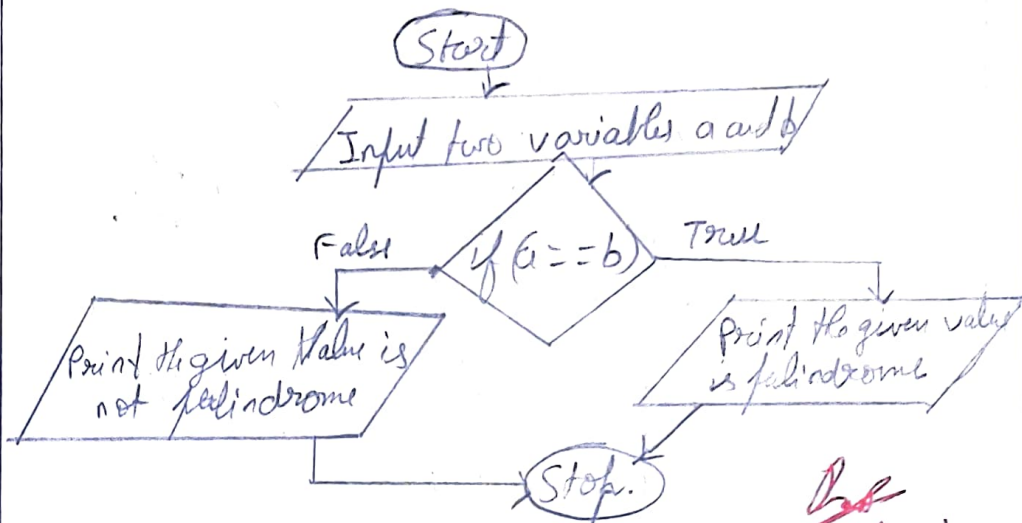 Start
Input two variables a and b
if (a==b)
False
True
Print the given Value is
not palindrome
Print the given value
is palindrome
Stop.